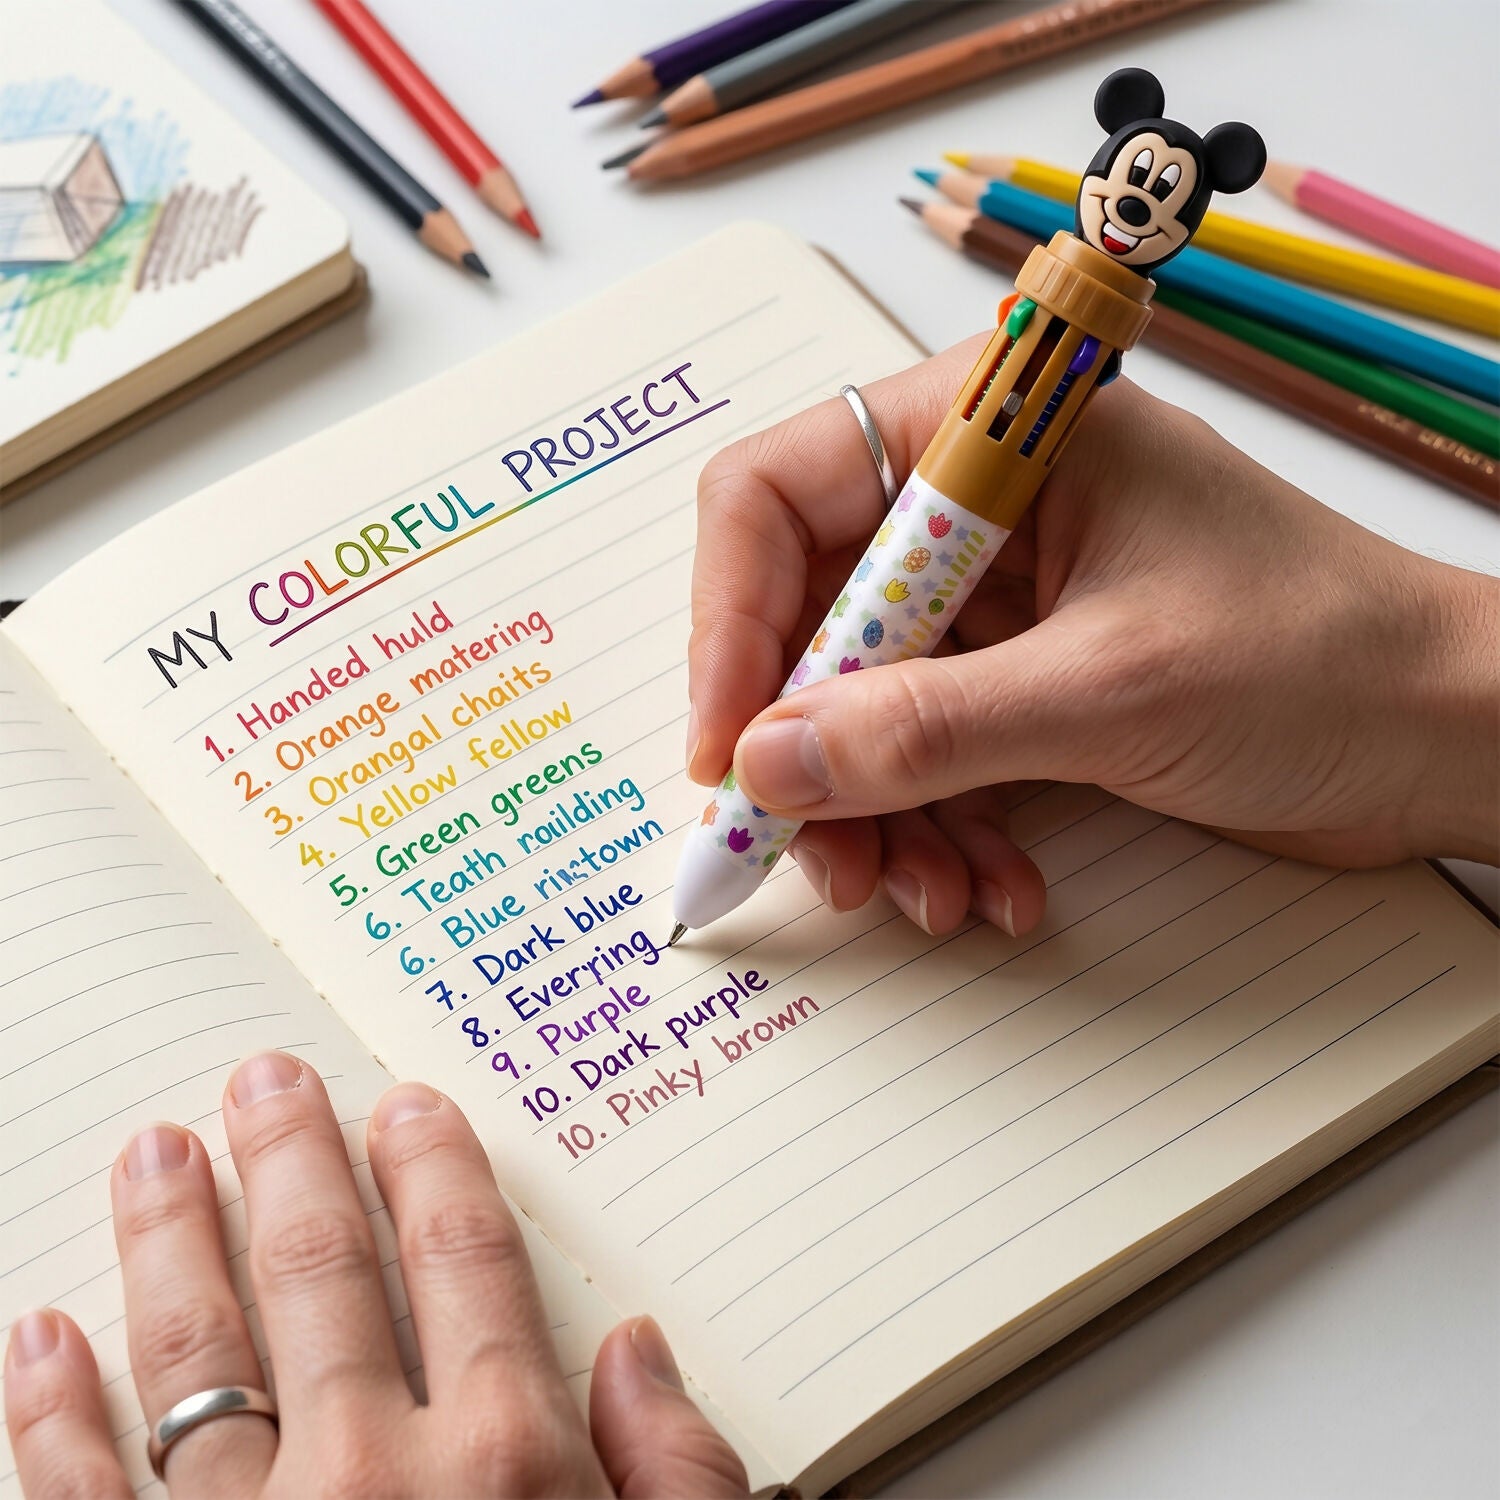 MY COLORFUL PROJECT
1. Handed huld
2. Orange matering
3. Orangal chaits
4. Yellow fellow
5. Green greens
6. Teath rouilding
6. Blue town
7. Dark blue
8. Everpring
9. Purple
10. Dark purple
10. Pinky brown